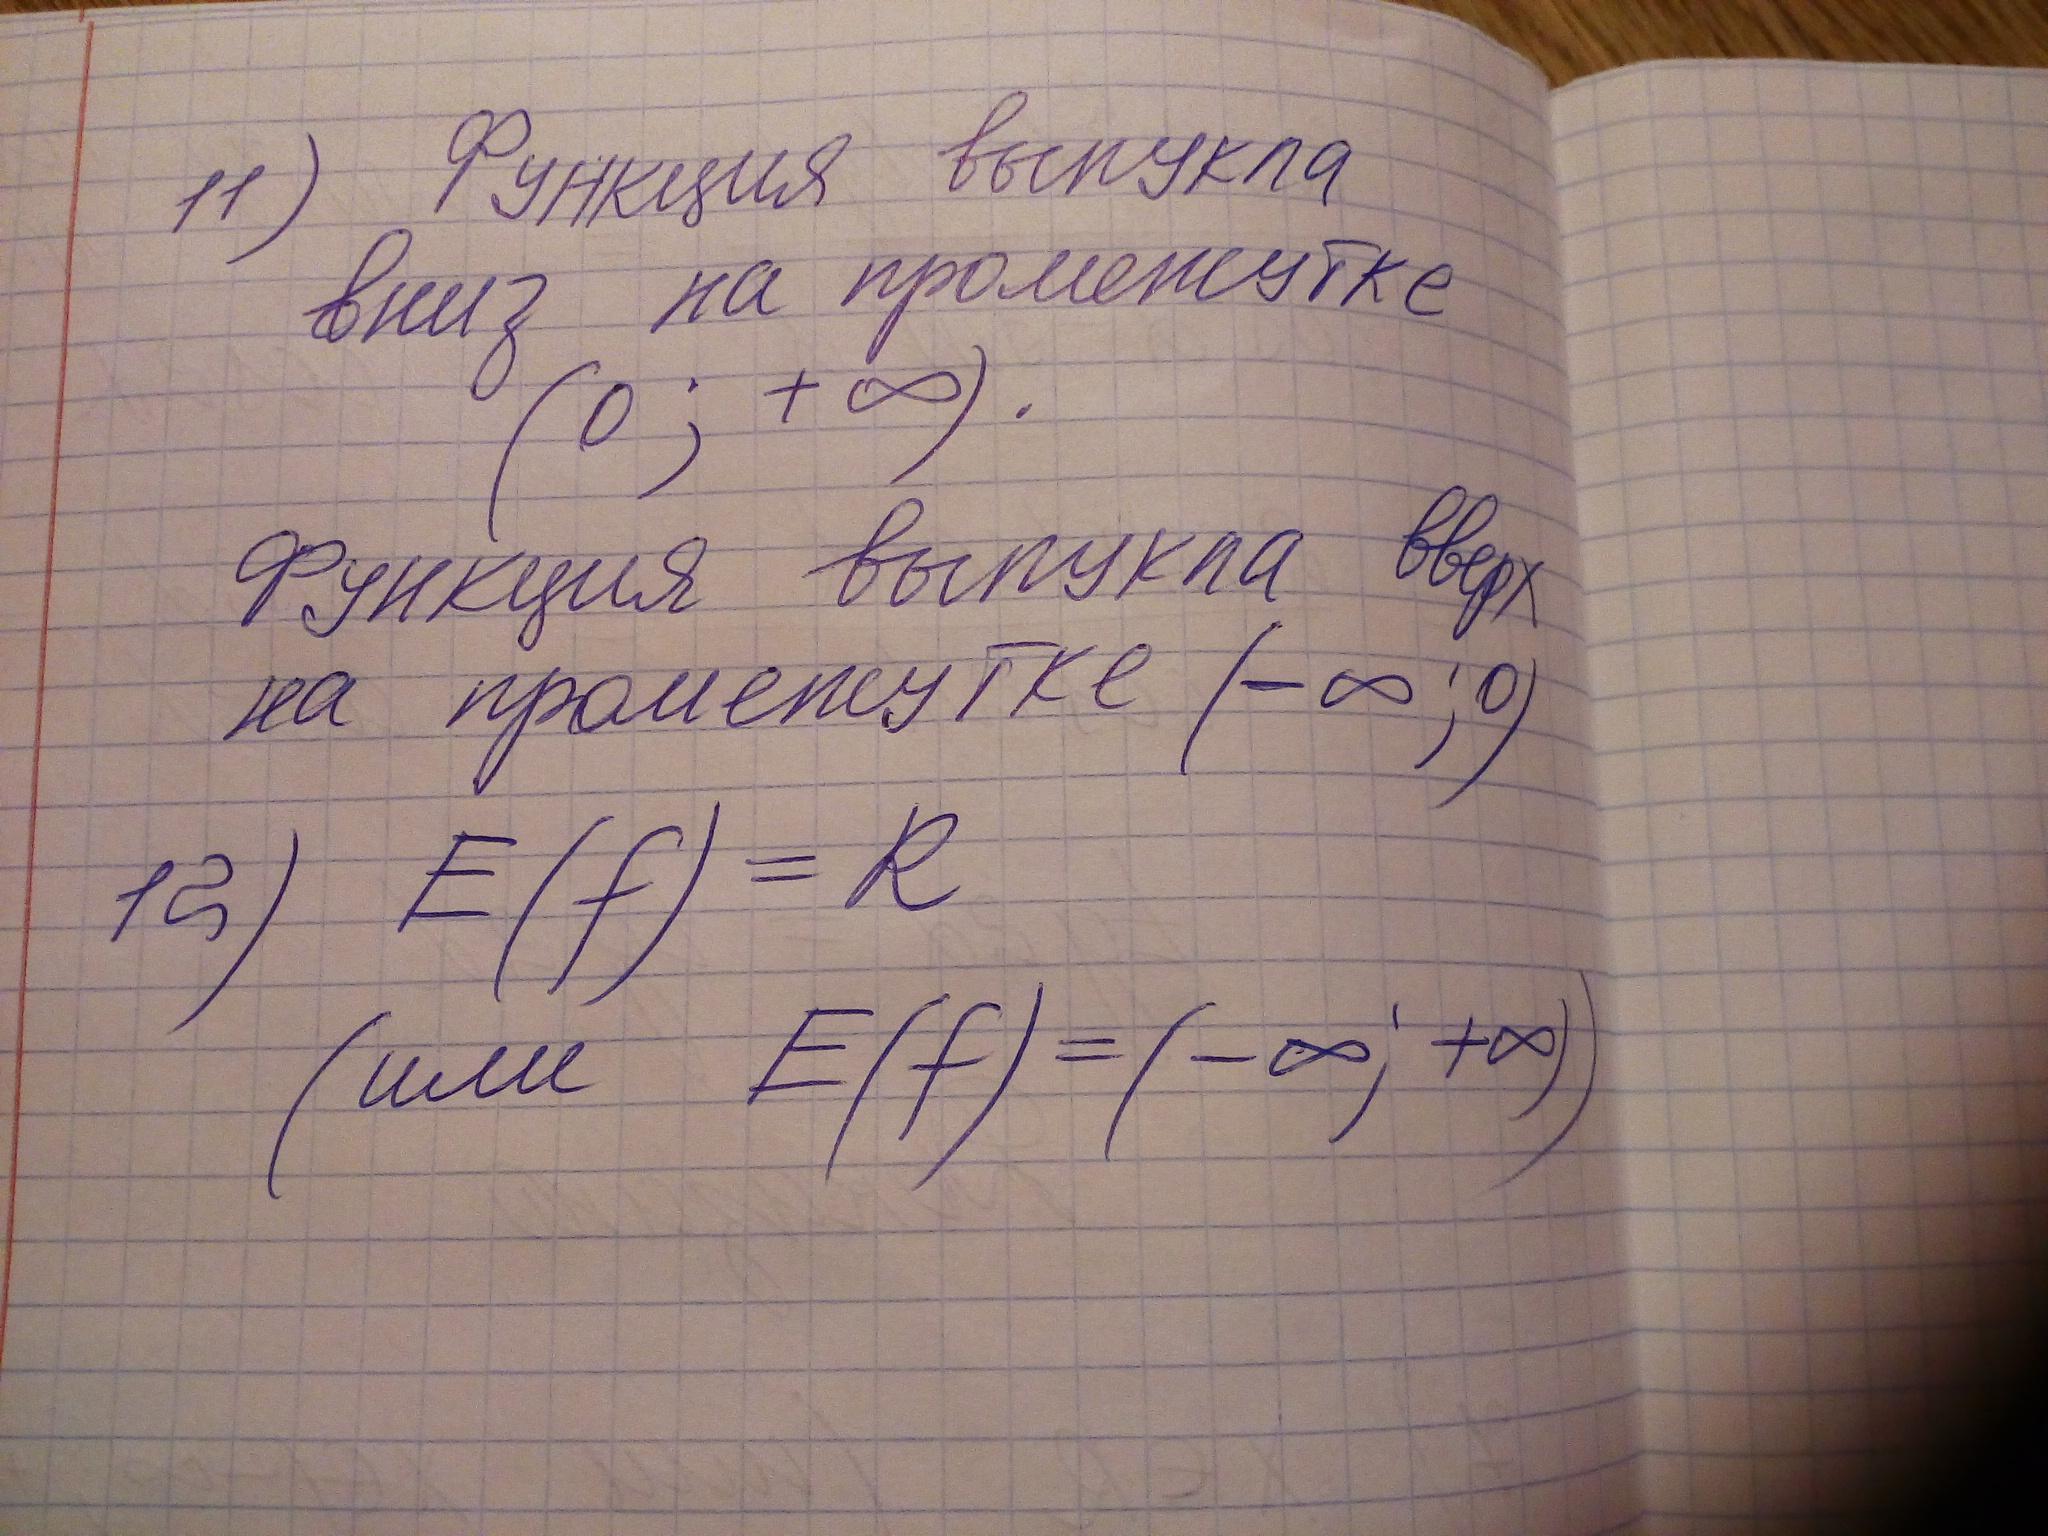 11) Функция выпукла
вниз на промежутке
(0; +∞).
Функция выпукла вверх
на промежутке (-∞; 0)
12) E(f) = R
(или E(f) = (-∞; +∞))